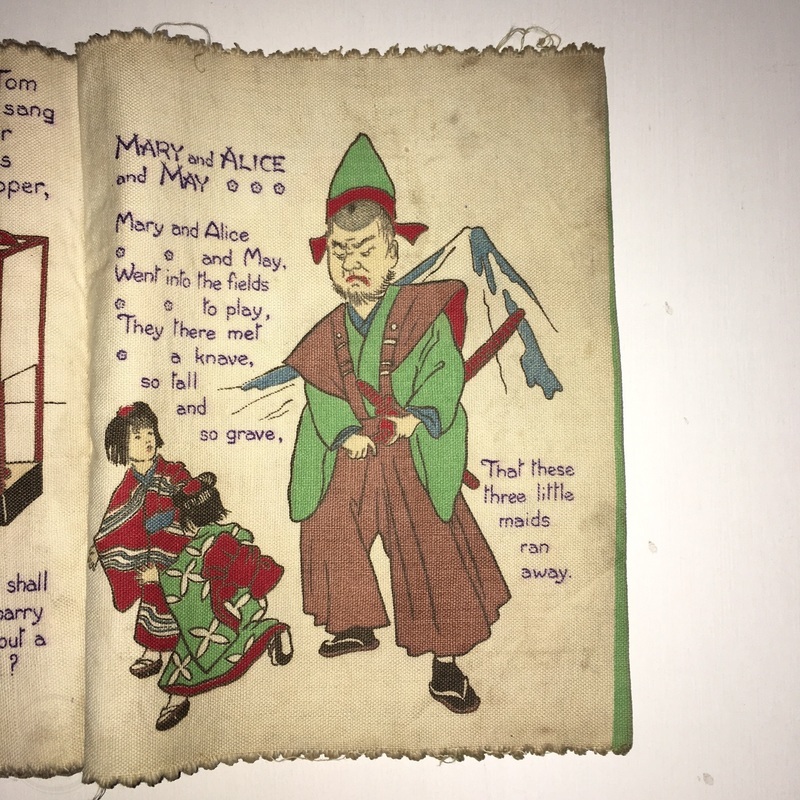 Tom
sang
r
s
pper,
shall
parry
out a
?
MARY and ALICE
and MAY
Mary and Alice
and May,
Went into the fields
to play,
They there met
a knave,
so tall
and
so grave,
That these
three little
maids
ran
away.